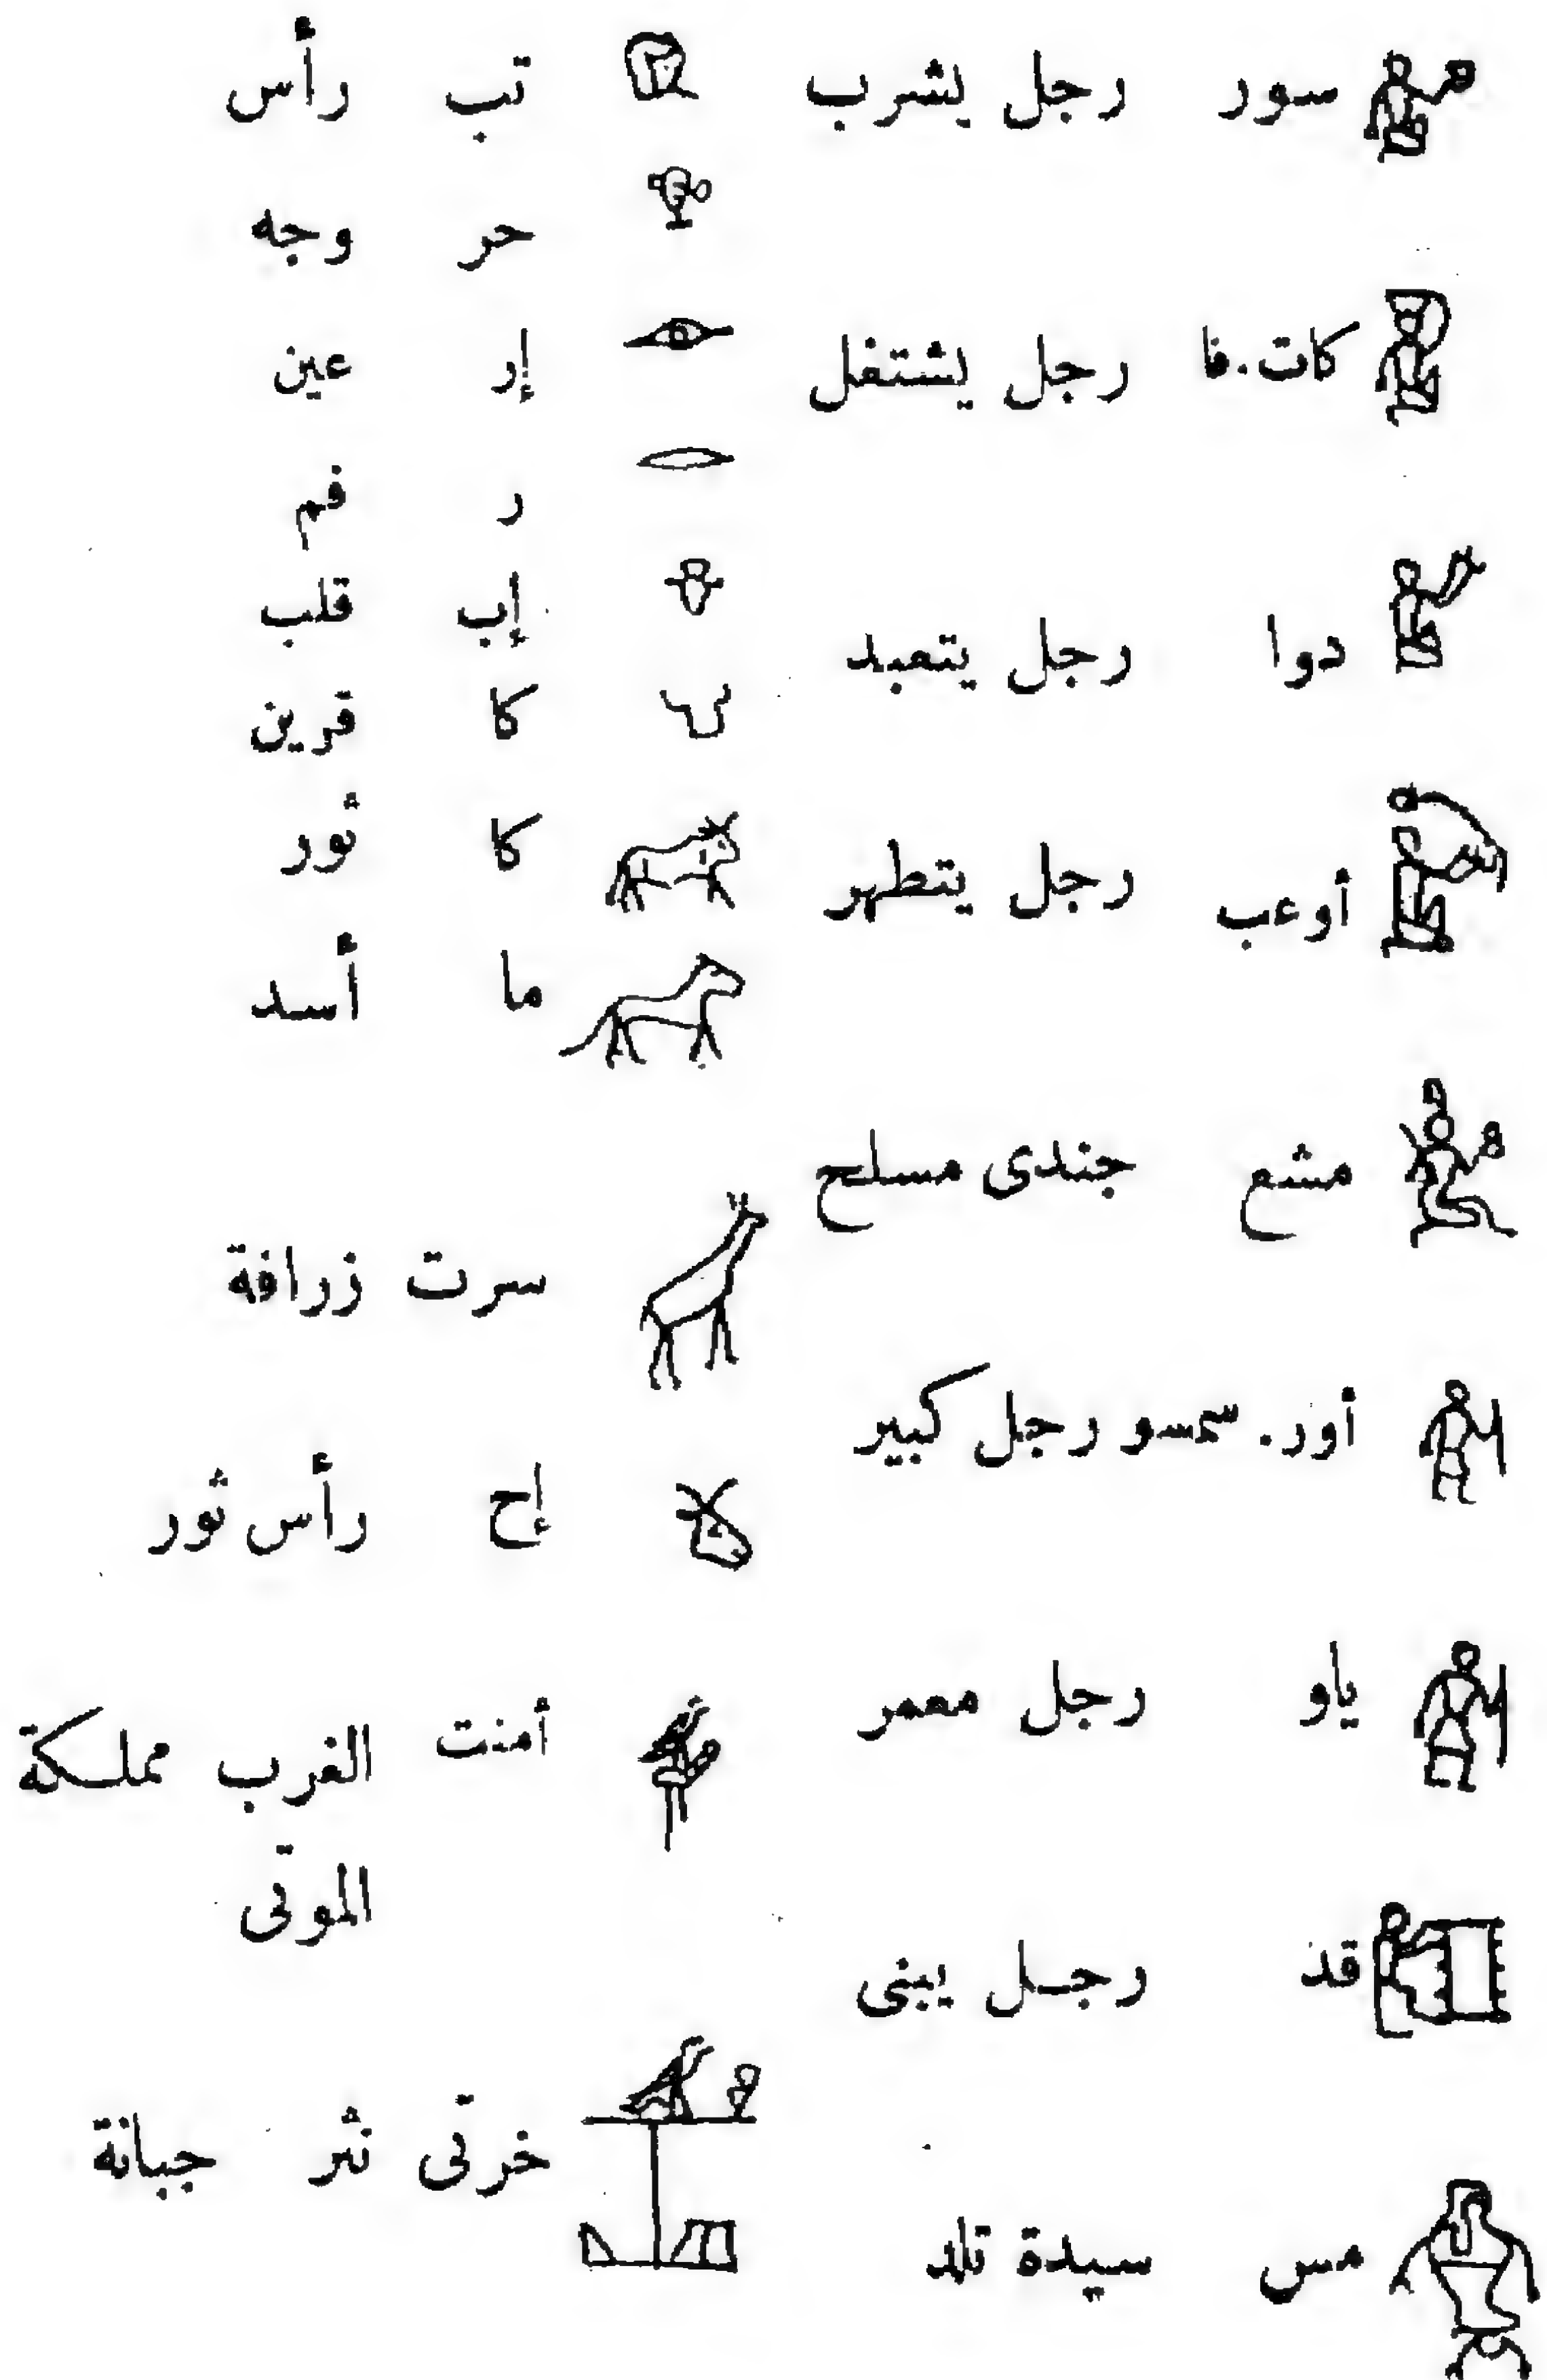 سور رجل يشرب
كات.فا رجل يشتغل
دوا رجل يتعبد
أوعب رجل يتطهر
مشع جندى مسلح
أور. سمسو رجل كبير
ياو رجل معمر
قد رجل يبنى
مس سيدة تلد
تب رأس
حر وجه
إر عين
ر فم
إب قلب
كا قرين
كا ثور
ما أسد
سرت زرافة
إح رأس ثور
أمنت الغرب مملكة
الموتى
خرتى نثر جبانة